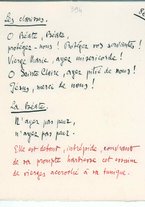 394
Les clarisses.
O Béate, Béate,
protégez-nous ! Protégez vos servantes !
Vierge Marie, ayez miséricorde !
O Sainte Claire, ayez pitié de nous !
Jésus, merci de nous !
La Béate
N'ayez pas peur,
n'ayez pas peur.
Elle est debout, intrépide, couvrant
de sa prompte hardiesse cet essaim
de vierges accroché à sa tunique.